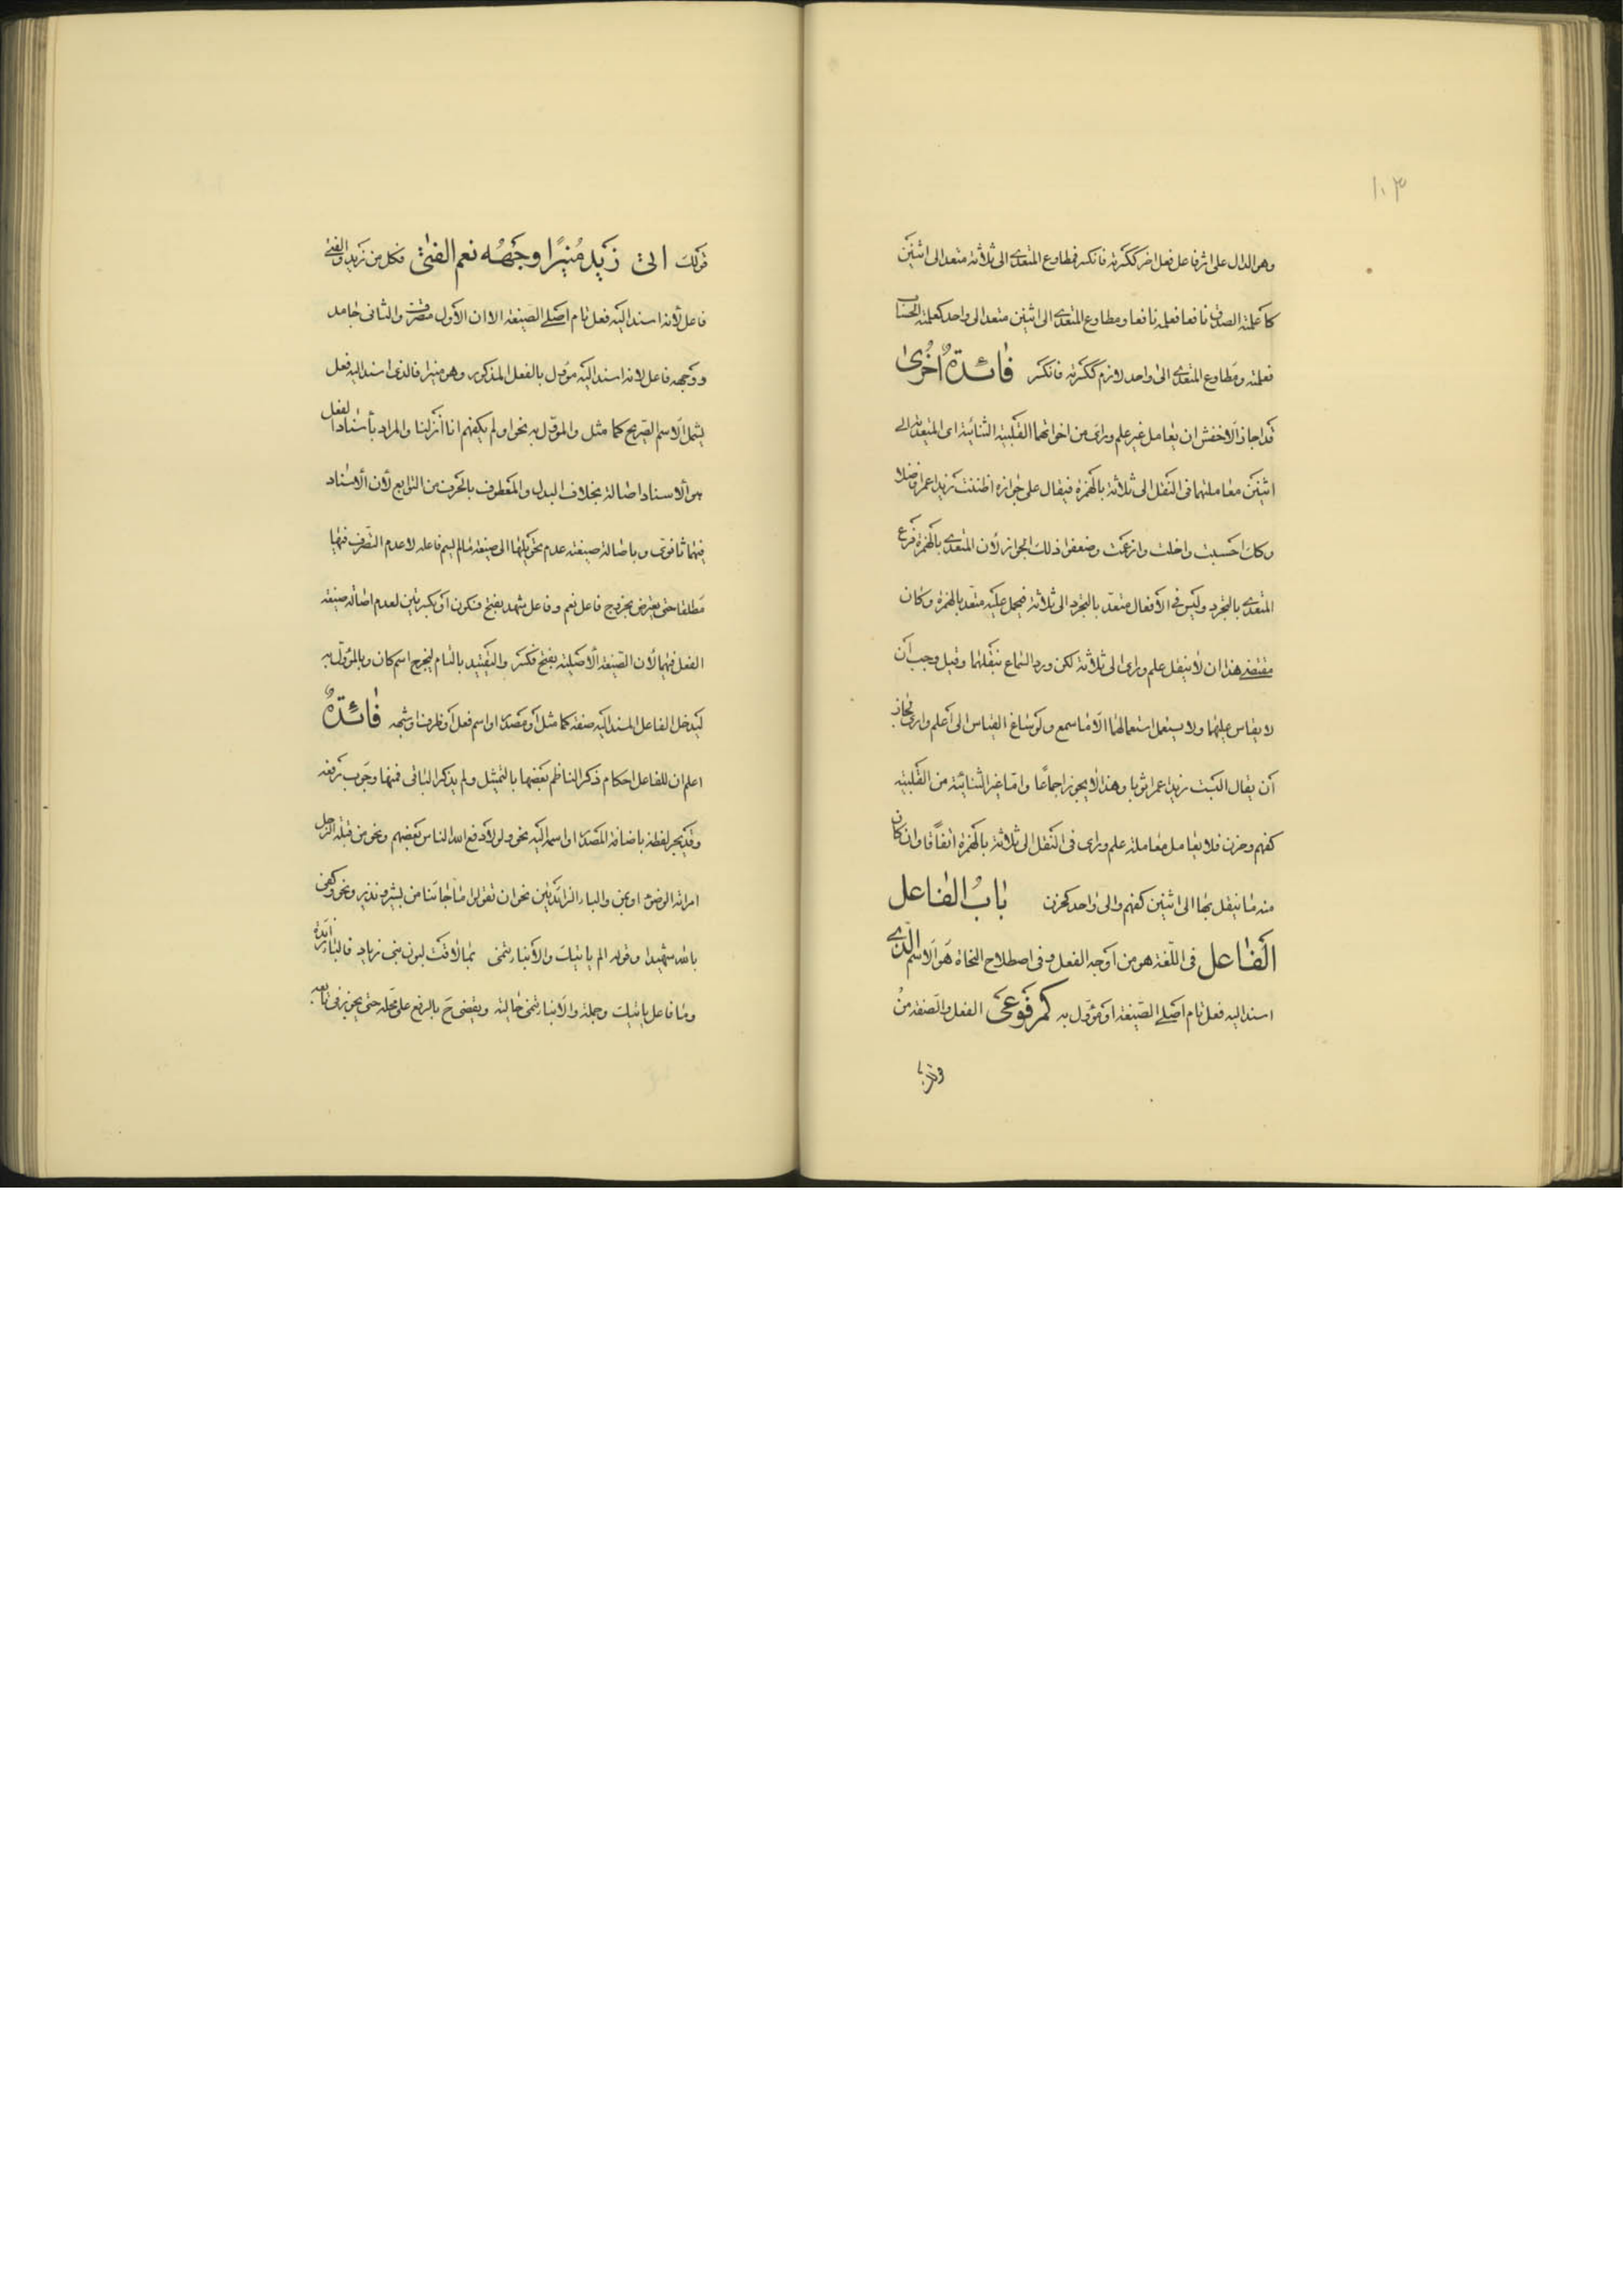 ١٠٣
وهو الدال على اثر فاعل فعل اخر ككسرته فانكسر فمطاوع المتعدى الى ثلاثة متعد الى اثنين
كاعلمته الصدق نافعا فعلمه نافعا ومطاوع المتعدى الى اثنين متعد الى واحد كعلمته الحساب
فعلمته ومطاوع المتعدى الى واحد لازم ككسرته فانكسر فائدة اخرى
قد اجاز الاخفش ان يعامل غير علم وراى من اخواتهما القلبية الثنائية اى المتعدية الى
اثنين معاملتهما فى النقل الى ثلاثة بالهمزة فيقال على جوازه اظننت زيدا عمرا فاضلا
وكذا احسبت واخلت وازعمت وضعفوا ذلك الجواز لأن المتعدى بالهمزة فرع
المتعدى بالتجرد وليس فى الأفعال متعد بالتجرد الى ثلاثة فيحمل عليه متعد بالهمزة وكان
مقتضى هذا ان لا ينقل علم وراى الى ثلاثة لكن ورد السماع بنقلهما وقيل وجب ان
لا يقاس عليهما ولا يستعمل استعمالهما الا ما سمع ولو ساغ القياس الى اعلم وارى لجاز
أن يقال اكسيت زيدا عمرا ثوبا وهذا لا يجوز اجماعا واما غير الثنائية من القلبية
كفهم وحزن فلا يعامل معاملة علم وراى فى النقل الى ثلاثة بالهمزة اتفاقا وان كان
منه ما ينقل بها الى اثنين كفهم والى واحد كحزن باب الفاعل
الفاعل فى اللغة هو من اوجد الفعل وفى اصطلاح النحاة هو الاسم الذى
اسند اليه فعل تام اصلى الصيغة او مؤول به كمرفوعى الفعل والصفة من
قولك
قولك اتى زيد منيرا وجهه نعم الفتى فكل من زيد والفتى
فاعل لأنه اسند اليه فعل تام اصلى الصيغة الا ان الأول متصرف والثانى جامد
ووجهه فاعل لانه اسند اليه مؤول بالفعل المذكور وهو منيرا فالذى اسند اليه فعل
يشمل الاسم الصريح كما مثل والمؤول به نحو اولم يكفهم انا انزلنا والمراد بأسناد الفعل
هو الاسناد اصالة بخلاف البدل والمعطوف بالحرف من التوابع لأن الأسناد
فيهما ثانوى وباصالة صيغته عدم تحويلها الى صيغة مالم يسم فاعله لا عدم التصرف فيها
مطلقا حتى يعترض بخروج فاعل نعم وفاعل شهد بفتح فسكون او بكسرتين لعدم اصالة صيغة
الفعل فيهما لأن الصيغة الأصلية بفتح فكسر والتقييد بالتام ليخرج اسم كان وبالمؤول به
ليدخل الفاعل المسند اليه صفة كما مثل او مصدر او اسم فعل او ظرف او شبهه فائدة
اعلم ان للفاعل احكام ذكر الناظم بعضها بالتمثيل ولم يذكر الباقى فمنها وجوب رفعه
وقد يجر لفظه باضافة المصدر او اسمه اليه نحو ولولا دفع الله الناس بعضهم ونحو من قبلة الرجل
امراته الوضوء او بمن والباء الزائدتين نحو ان تقولوا ما جاءنا من بشير ونذير ونحو وكفى
بالله شهيدا وقوله الم ياتيك والأنباء تنمى بما لاقت لبون بنى زياد فالباء زائدة
وما فاعل ياتيك وجملة والأنباء تنمى حالية ويقضى ح بالرفع على محله حتى يجوز فى تابعه